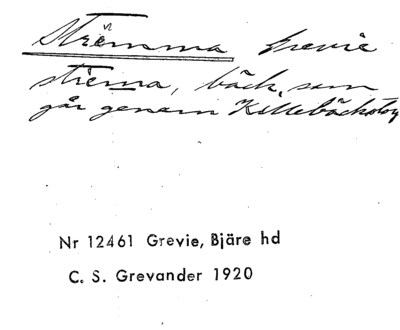 Strömma Grevie
striema, bäck, som
går genom Killebäckstorp
Nr 12461 Grevie, Bjäre hd
C. S. Grevander 1920